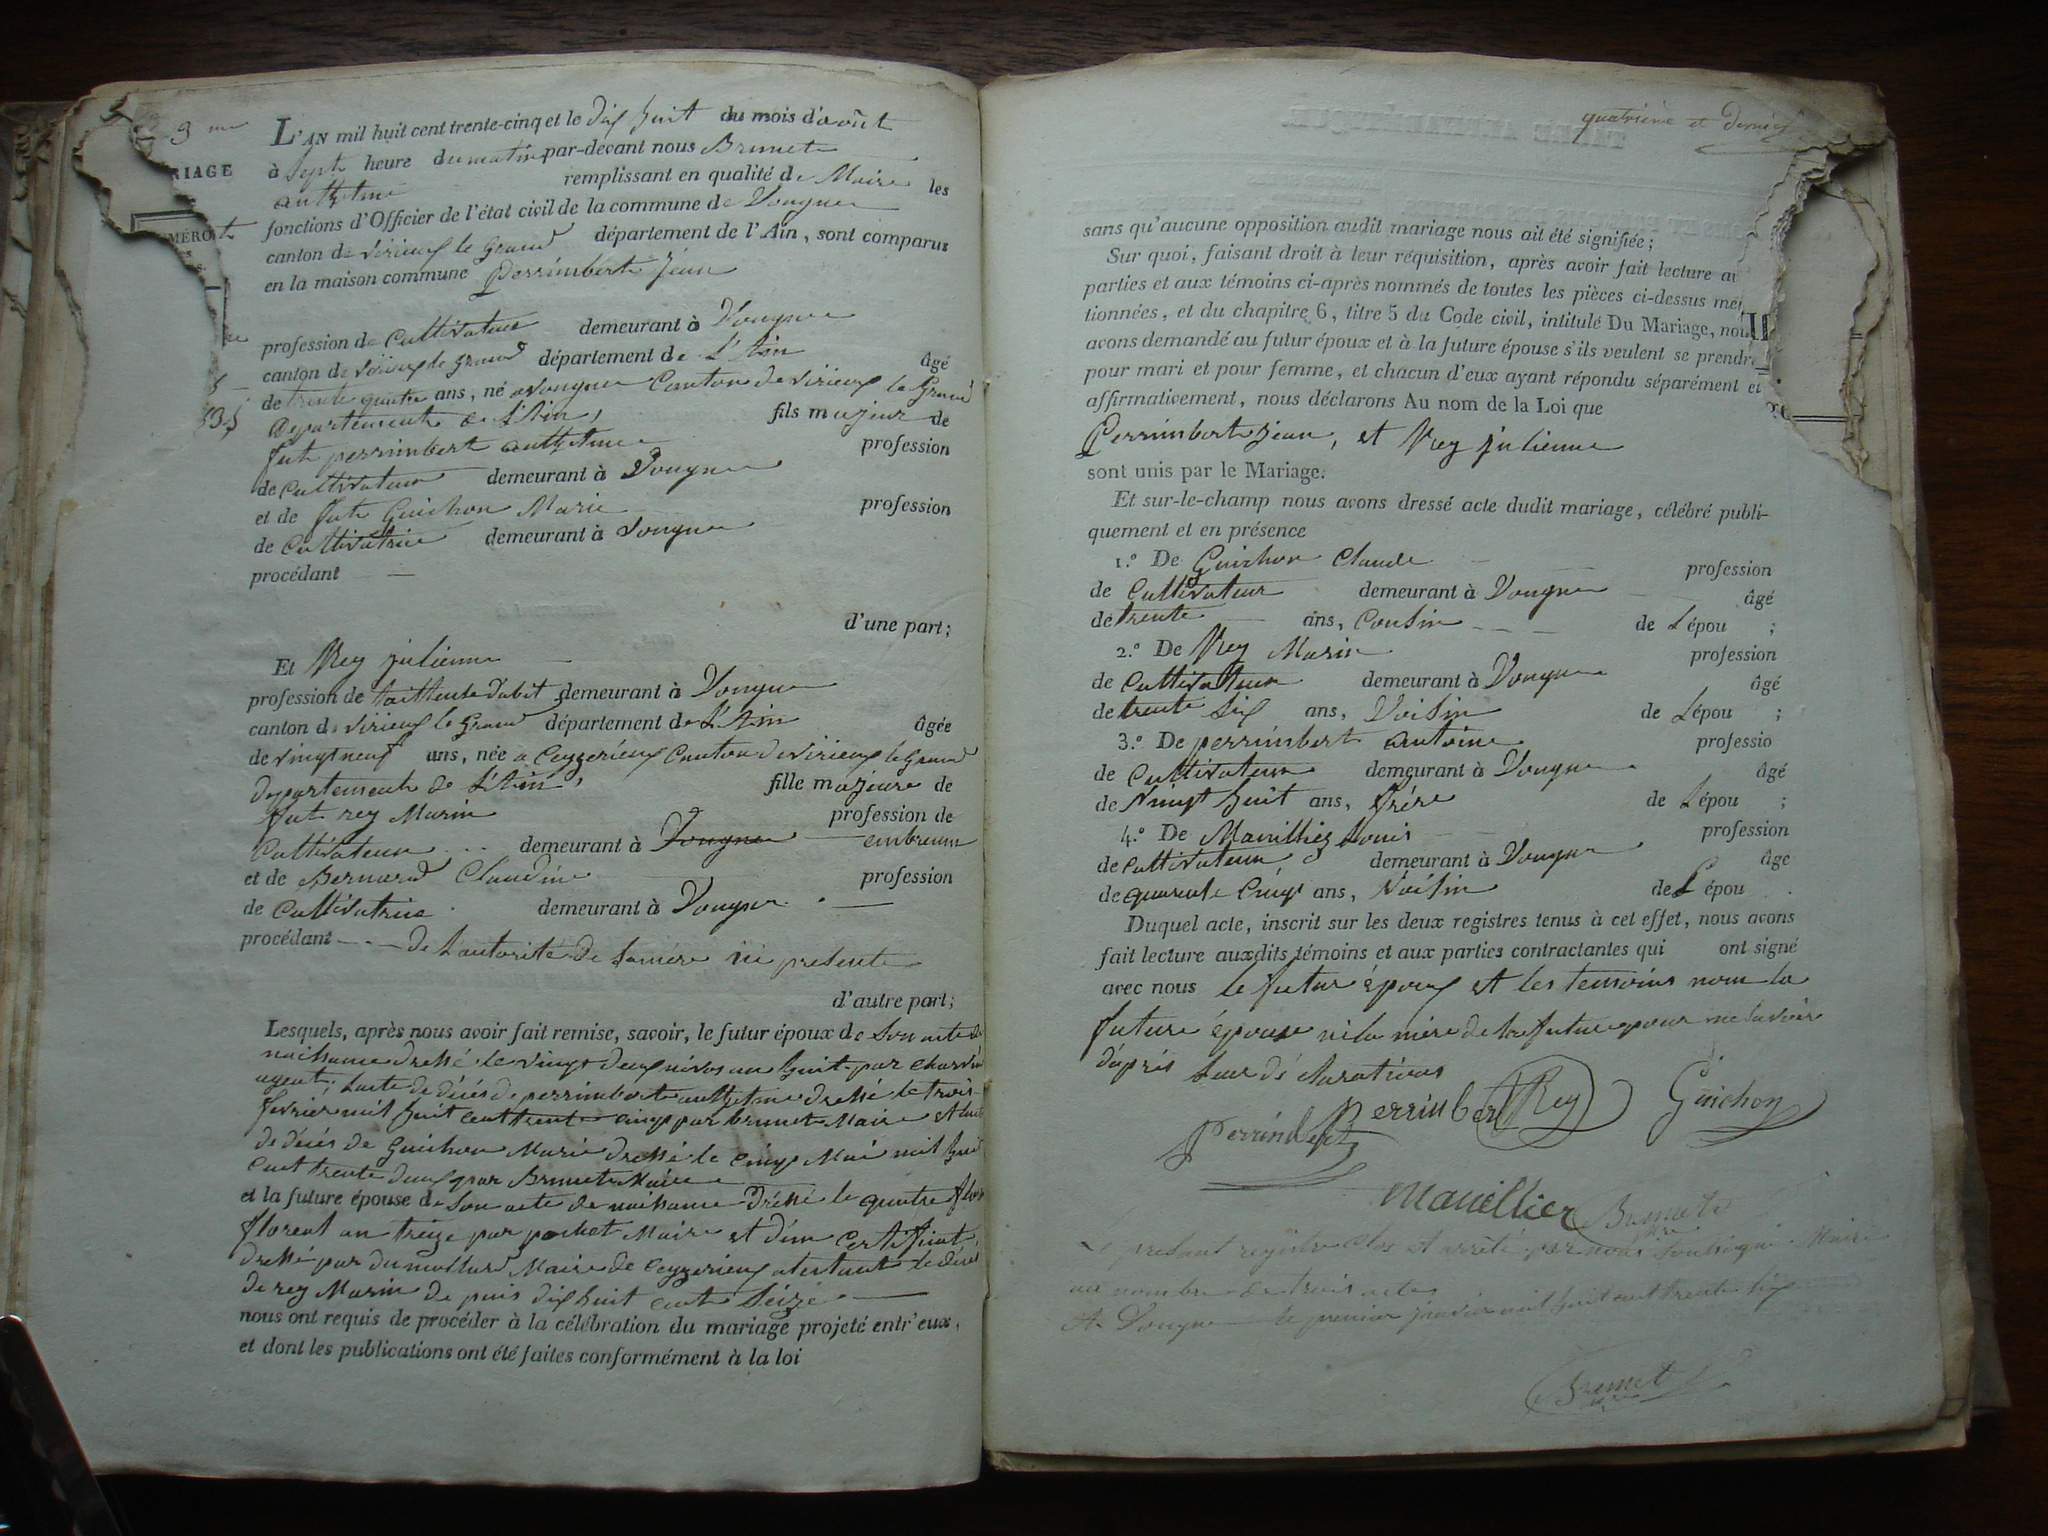 3 me
RIAGE
MÉRO
L'AN mil huit cent trente-cinq et le dix huit du mois d'août
à Sept heure du matin par-devant nous Brunet
anthelme remplissant en qualité de Maire les
fonctions d'Officier de l'état civil de la commune de Vongne
canton de virieux le Grand département de l'Ain, sont comparus
en la maison commune Perrimbert Jean
profession de Cultivateur demeurant à Vongne
canton de virieux le Grand département de L'Ain âgé
de trente quatre ans, né a Vongne Canton de virieux le Grand
departement de L'Ain, fils majeur de
fut perrimbert anthelme profession
de Cultivateur demeurant à Vongne
et de fut Guichon Marie profession
de Cultivatrice demeurant à Vongne
procédant
d'une part;
Et Rey julienne
profession de taillieuse d'abit demeurant à Vongne
canton de virieux le Grand département de L'Ain âgée
de vingt neuf ans, née a Ceyzerieux Canton de virieux le Grand
departement de L'Ain, fille majeure de
fut rey Marin profession de
Cultivateur demeurant à Vongne
et de Bernard Claudine profession
de Cultivatrice demeurant à Vongne
procédant de L'autorité de Sa mére ici presente
d'autre part;
Lesquels, après nous avoir fait remise, savoir, le futur époux de Son acte de
naissance dressé le vingt deux nivos an huit par
agent; Lacte de décés de perrimbert anthelme dressé le trois
fevrier mil huit cent trente cinq par brunet Maire et Lacte
de décés de Guichon Marie dressé le cinq Mai mil huit
cent trente deux par Brunet Maire
et la future épouse de Son acte de naissance dréssé le quatre
floreal an treize par pochet Maire et d'un certificat
dressé par dumollard Maire de Ceyzerieux atestant le décés
de rey Marin de puis dix huit cent Seize
nous ont requis de procéder à la célébration du mariage projeté entr'eux,
et dont les publications ont été faites conformément à la loi
quatrième et dernier
sans qu'aucune opposition audit mariage nous ait été signifiée;
Sur quoi, faisant droit à leur réquisition, après avoir fait lecture au
parties et aux témoins ci-après nommés de toutes les pièces ci-dessus me
tionnées, et du chapitre 6, titre 5 du Code civil, intitulé Du Mariage, nou
avons demandé au futur époux et à la future épouse s'ils veulent se prendr
pour mari et pour femme, et chacun d'eux ayant répondu séparément et
affirmativement, nous déclarons Au nom de la Loi que
Perrimbert jean, et Rey julienne
sont unis par le Mariage.
Et sur-le-champ nous avons dressé acte dudit mariage, célébré publi-
quement et en présence
1.° De Guichon Claude profession
de Cultivateur demeurant à Vongne âgé
de trente ans, Cousin de L'épou ;
2.° De Rey Marin profession
de Cultivateur demeurant à Vongne âgé
de trente Six ans, Voisin de L'épou ;
3.° De perrimbert antoine professio
de Cultivateur demeurant à Vongne âgé
de Vingt huit ans, frére de L'épou ;
4.° De Manilliez Louis profession
de Cultivateur demeurant à Vongne âge
de quarente Cinq ans, Voisin de L'épou
Duquel acte, inscrit sur les deux registres tenus à cet effet, nous avons
fait lecture auxdits témoins et aux parties contractantes qui ont signé
avec nous le futur époux et les temoins non la
future épouse ni la mére de la future pour ne Savoir
d'aprés Leur déclarations
Perrimbert Rey Guichon
Perrimbert
Manillier Brunet
Le présent registre clos et arrêté par nous Soussigné Maire
au nombre de trois actes
A Vongne le premier janvier mil huit cent trente Six
Brunet